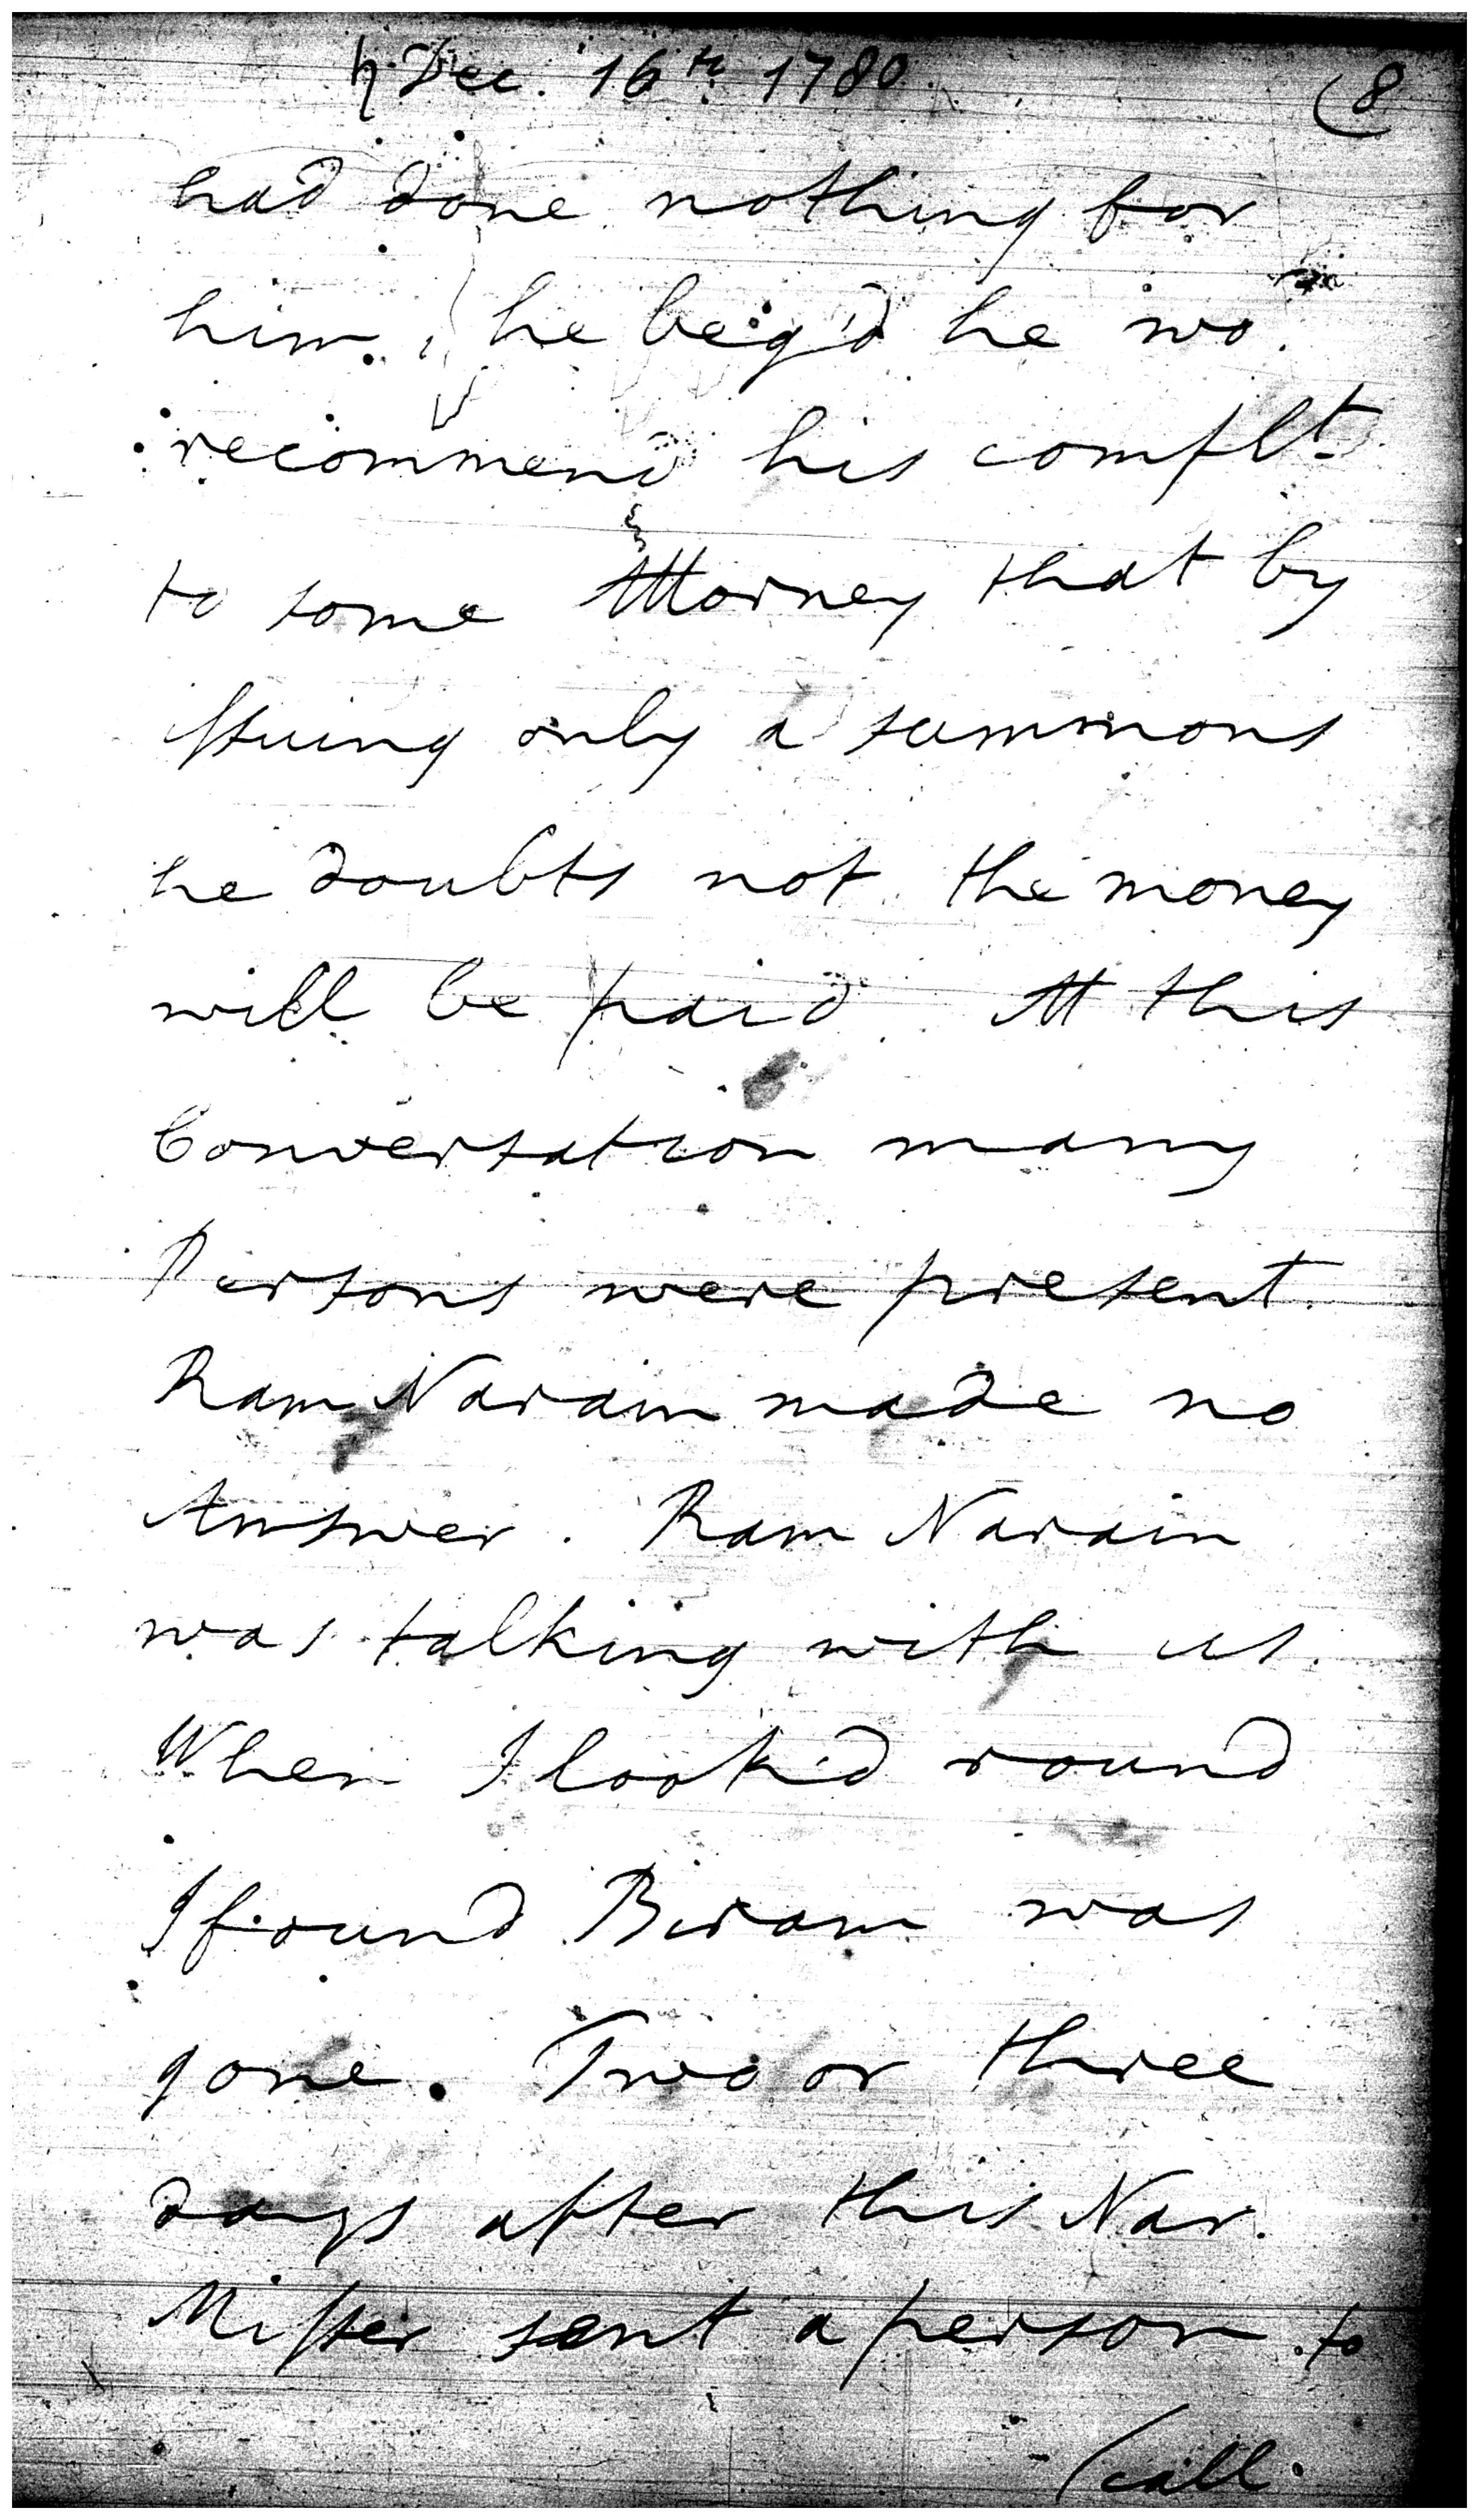 ♄ Dec. 16th 1780. (8
had done nothing for
him, he beg'd he wo.
recommend his complt
to some Attorney that by
issuing only a summons
he doubts not the money
will be paid. At this
Conversation many
Persons were present.
Ram Narain made no
Answer. Ram Narain
was talking with us.
When I look'd round
I found Biram was
gone. Two or three
days after this Nar.
Misser sent a person to
(call.